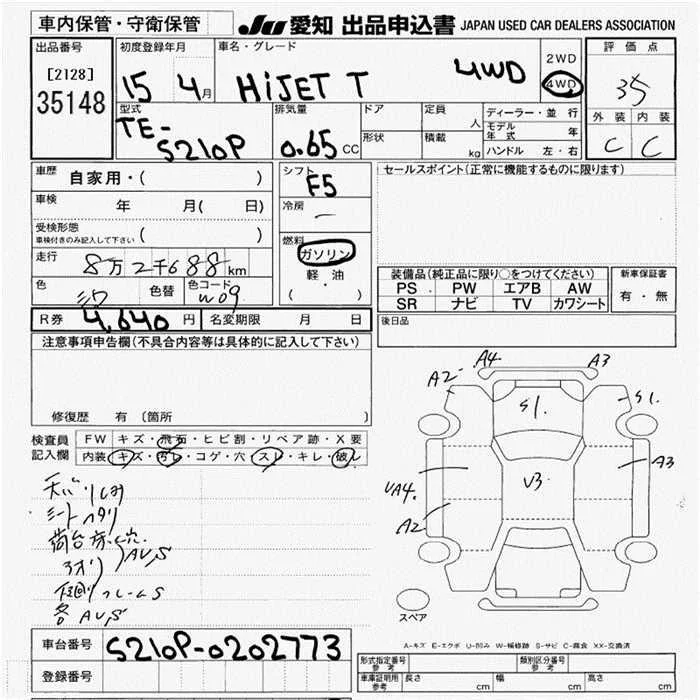 車内保管・守衛保管
JU 愛知 出品申込書 JAPAN USED CAR DEALERS ASSOCIATION
出品番号
[2128]
35148
初度登録年月
15 4月
車名・グレード
HiJET T 4WD
2WD
4WD
評価点
35
外装 内装
C C
型式
TE-
S210P
排気量
0.65 CC
ドア
形状
定員 人
積載 kg
ディーラー・並行
モデル年式 年
ハンドル 左・右
車歴 自家用・( )
車検 年 月( 日)
受検形態
車検付きのみ記入して下さい ( )
走行 8万2千688 km
色 シロ 色替 色コード W09
シフト
F5
冷房
燃料
ガソリン
軽油
( ・ )
セールスポイント(正常に機能するものに限ります)
装備品(純正品に限り○をつけてください)
PS PW エアB AW
SR ナビ TV カワシート
新車保証書
有・無
R券 4,640 円 名変期限 月 日
後日品
注意事項申告欄(不具合内容等は具体的に記入して下さい)
修復歴 有 〔箇所 〕
検査員記入欄
FW キズ・飛石・ヒビ割・リペア跡・X要
内装 キズ・汚レ・コゲ・穴・スレ・キレ・破レ
シートヘタリ
AV,S
各AV,S
A2 A4 A3
S1. S1.
V3
A3
UA4.
A2
スペア
A-キズ E-エクボ U-凹み W-補修跡 S-サビ C-腐食 XX-交換済
車台番号 S210P-0202773
登録番号
形式指定番号 参考
類別区分番号 参考
車庫証明用 参考 長さ cm 幅 cm 高さ cm